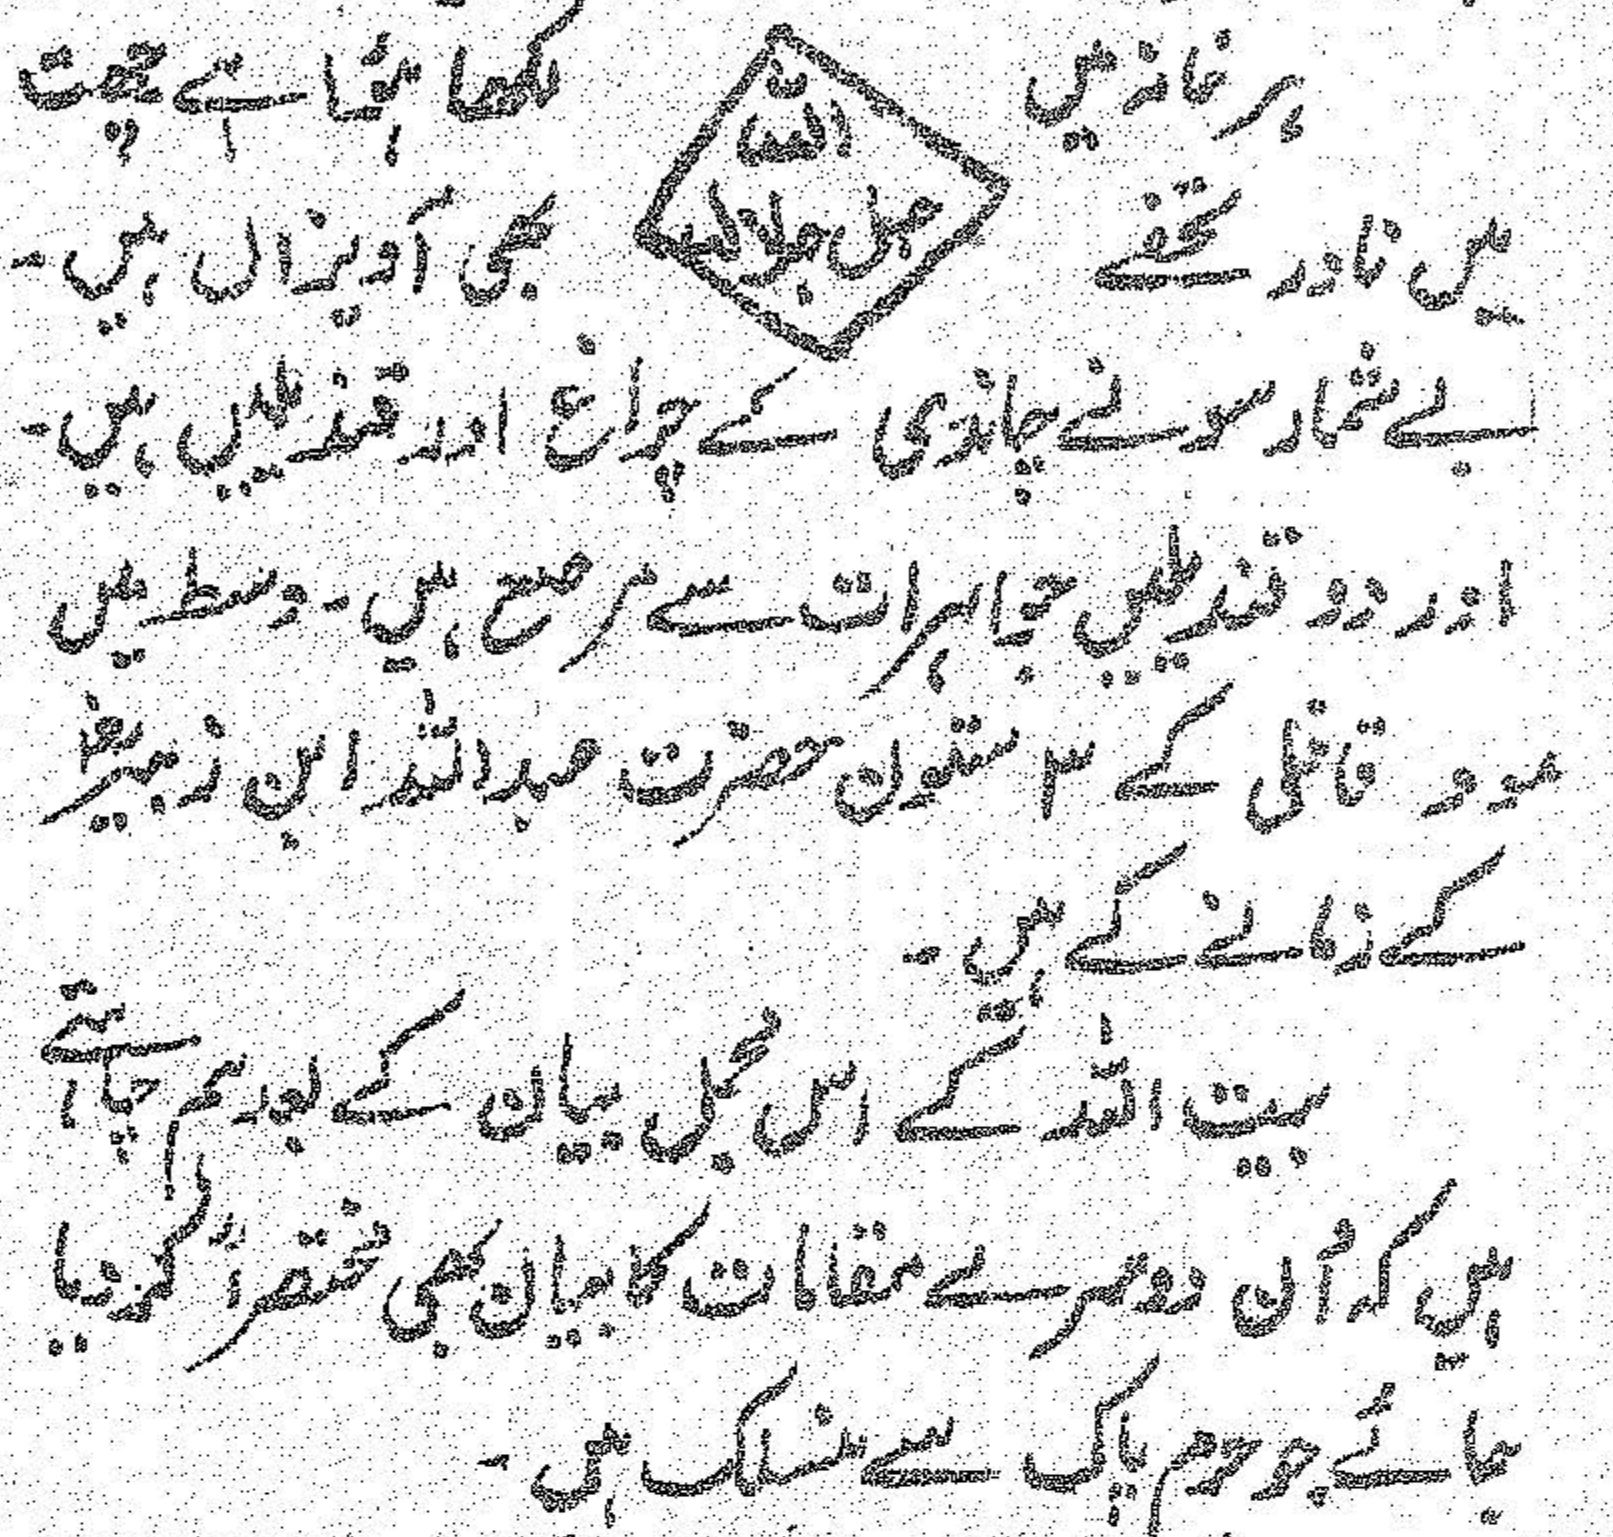 ہر خانہ میں اللہ جل جلالہ لکھا ہوا ہے چھت
میں نادر تحفے بھی آویزاں ہیں۔
بے شمار سونے چاندی کے چراغ اور قندیلیں ہیں۔
اور دو قندیلیں جواہرات سے مرصع ہیں۔ وسط میں
عود قاقلی کے ۳ ستون حضرت عبداللہ ابن زبیرؓ
کے زمانے کے ہیں۔
بیت اللہ کے اس مجمل بیان کے بعد ہم چاہتے
ہیں کہ اُن دوسرے مقامات کا بیان بھی مختصراً کر دیا
جائے جو حرم پاک سے منسلک ہیں۔